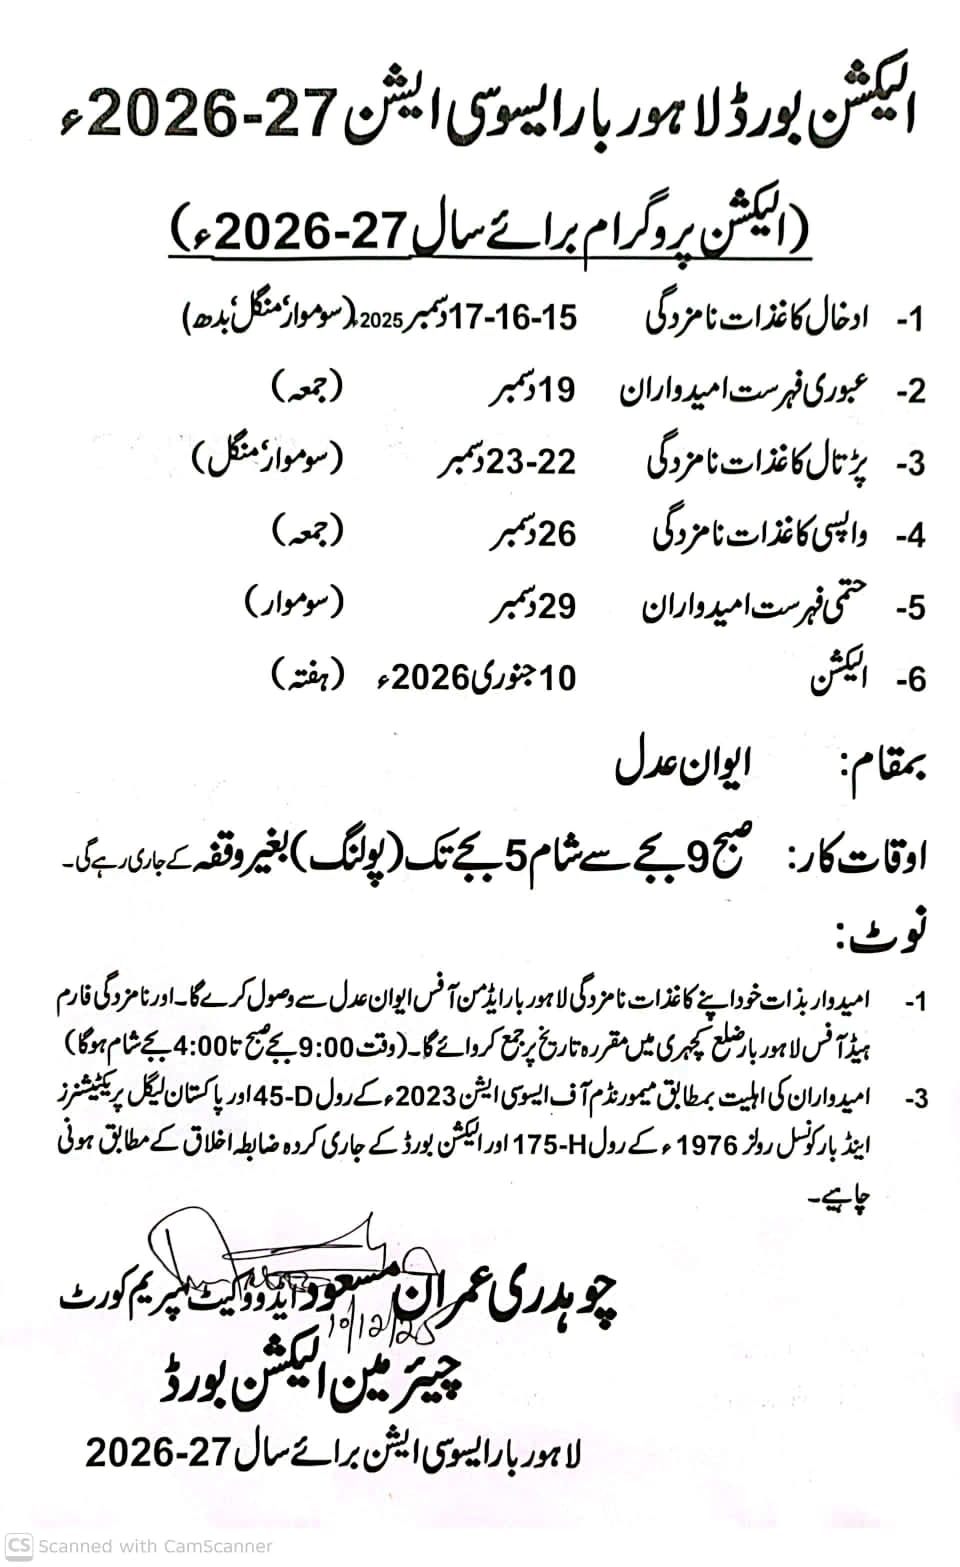 الیکشن بورڈ لاہور بار ایسوسی ایشن 27-2026ء
(الیکشن پروگرام برائے سال 27-2026ء)
1- ادخال کاغذات نامزدگی 15-16-17 دسمبر 2025ء (سوموار، منگل، بدھ)
2- عبوری فہرست امیدواران 19 دسمبر (جمعہ)
3- پڑتال کاغذات نامزدگی 22-23 دسمبر (سوموار، منگل)
4- واپسی کاغذات نامزدگی 26 دسمبر (جمعہ)
5- حتمی فہرست امیدواران 29 دسمبر (سوموار)
6- الیکشن 10 جنوری 2026ء (ہفتہ)
بمقام: ایوان عدل
اوقات کار: صبح 9 بجے سے شام 5 بجے تک (پولنگ) بغیر وقفہ کے جاری رہے گی۔
نوٹ:
1- امیدوار بذات خود اپنے کاغذات نامزدگی لاہور بار ایڈمن آفس ایوان عدل سے وصول کرے گا۔ اور نامزدگی فارم
ہیڈ آفس لاہور بار ضلع کچہری میں مقررہ تاریخ پر جمع کروائے گا۔ (وقت 9:00 بجے صبح تا 4:00 بجے شام ہوگا)
3- امیدواران کی اہلیت بمطابق میمورنڈم آف ایسوسی ایشن 2023ء کے رول 45-D اور پاکستان لیگل پریکٹیشنرز
اینڈ بار کونسل رولز 1976ء کے رول 175-H اور الیکشن بورڈ کے جاری کردہ ضابطہ اخلاق کے مطابق ہونی
چاہیے۔
چوہدری عمران مسعود ایڈووکیٹ سپریم کورٹ
10/12/25
چیئرمین الیکشن بورڈ
لاہور بار ایسوسی ایشن برائے سال 27-2026
CS Scanned with CamScanner